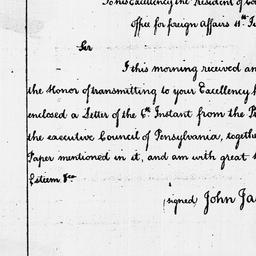 To his Excellency the President of Co
Office for foreign Affairs 11th Fe
Sir
I this morning received an
the Honor of transmitting to your Excellency h
enclosed a Letter of the 6th Instant from the Pr
the executive Council of Pensylvania, togethe
Paper mentioned in it, and am with great r
Esteem &ca
signed John Ja